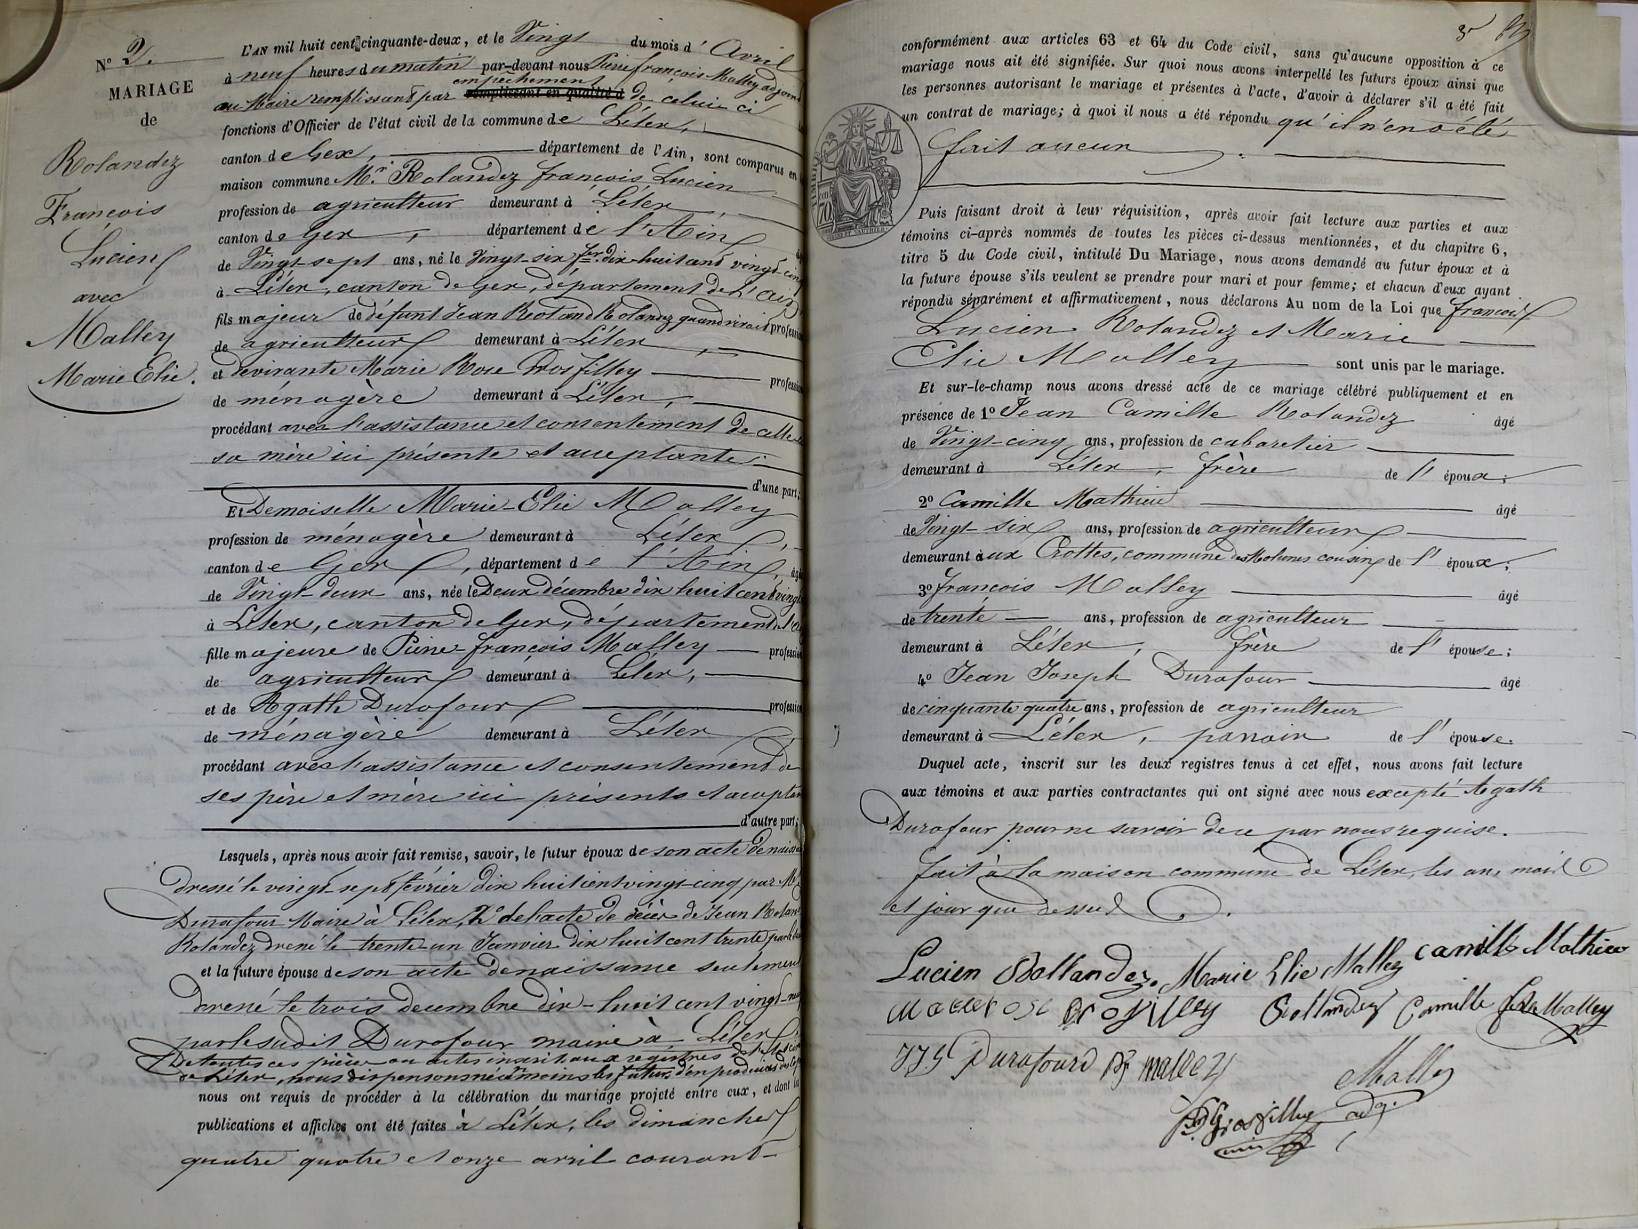 N° 2.
MARIAGE
de
Rolandez
François
Lucien
avec
Malley
Marie Elie.
L'AN mil huit cent cinquante-deux, et le Vingt du mois d' Avril
à neuf heures du matin par-devant nous Pierre françois Malley adjoint
empêchement
au Maire remplissant par de celui ci
fonctions d'Officier de l'état civil de la commune de Lélex,
canton de Gex, département de l'Ain, sont comparus en
maison commune Mr. Rolandez françois Lucien
profession de agriculteur demeurant à Lélex,
canton de Gex, département de l'Ain
de Vingt-sept ans, né le Vingt-six fer. dix-huit cent vingt-cinq
à Lélex, canton de Gex, département de l'ain
fils majeur de défunt Jean Roland Rolandez quand vivait profession
de agriculteur demeurant à Lélex,
et de vivante Marie Rose Grosfilley profession
de ménagère demeurant à Lélex,
procédant avec l'assistance et consentement de celle
sa mère ici présente et acceptante.
d'une part;
Et Demoiselle Marie-Elie Malley
profession de ménagère demeurant à Lélex,
canton de Gex, département de l'Ain, âgé
de Vingt-deux ans, née le Deux décembre dix huit cent vingt
à Lélex, canton de Gex, département de l'ain
fille majeure de Pierre françois Malley profession
de agriculteur demeurant à Lélex,
et de Agath Durafour profession
de ménagère demeurant à Lélex
procédant avec l'assistance et consentement de
ses père et mère ici présents et acceptant
d'autre part;
Lesquels, après nous avoir fait remise, savoir, le futur époux de son acte de naissance
dressé le vingt-sept février dix huit cent vingt-cinq par Mr
Durafour Maire à Lélex, 2° de l'acte de décès de Jean Roland
Rolandez dressé le trente-un Janvier dix huit cent trente par le dit
et la future épouse de son acte de naissance seulement
dressé le trois décembre dix-huit cent vingt-neuf
par le susdit Durafour maire à Lélex
De toutes ces pièces ou actes inscrit aux registres de
de Lélex, nous dispensons néanmoins les futurs d'en produire
nous ont requis de procéder à la célébration du mariage projeté entre eux, et dont les
publications et affiches ont été faites à Lélex, les dimanches
quatre quatre et onze avril courant
3
conformément aux articles 63 et 64 du Code civil, sans qu'aucune opposition à ce
mariage nous ait été signifiée. Sur quoi nous avons interpellé les futurs époux ainsi que
les personnes autorisant le mariage et présentes à l'acte, d'avoir à déclarer s'il a été fait
un contrat de mariage; à quoi il nous a été répondu qu'il n'en a été
fait aucun
Puis faisant droit à leur réquisition, après avoir fait lecture aux parties et aux
témoins ci-après nommés de toutes les pièces ci-dessus mentionnées, et du chapitre 6,
titre 5 du Code civil, intitulé Du Mariage, nous avons demandé au futur époux et à
la future épouse s'ils veulent se prendre pour mari et pour femme; et chacun d'eux ayant
répondu séparément et affirmativement, nous déclarons Au nom de la Loi que françois
Lucien Rolandez et Marie
Elie Malley sont unis par le mariage.
Et sur-le-champ nous avons dressé acte de ce mariage célébré publiquement et en
présence de 1° Jean Camille Rolandez âgé
de Vingt-cinq ans, profession de cabaretier
demeurant à Lélex, frère de l'époux;
2° Camille Mathieu âgé
de Vingt-six ans, profession de agriculteur
demeurant à aux Crottes, commune des Molunes cousin de l'époux;
3° françois Malley âgé
de trente ans, profession de agriculteur
demeurant à Lélex, frère de l'épouse;
4° Jean Joseph Durafour âgé
de cinquante quatre ans, profession de agriculteur
demeurant à Lélex, parrain de l'épouse.
Duquel acte, inscrit sur les deux registres tenus à cet effet, nous avons fait lecture
aux témoins et aux parties contractantes qui ont signé avec nous excepté Agath
Durafour pour ne savoir de ce par nous requise.
fait à la maison commune de Lélex, les an, mois
et jour que dessus.
Lucien Rollandez. Marie Elie Malley camille Mathieu
Rollandez Camille Malley
JJS Durafourd Malley
Malley
adj.
Grosfilley